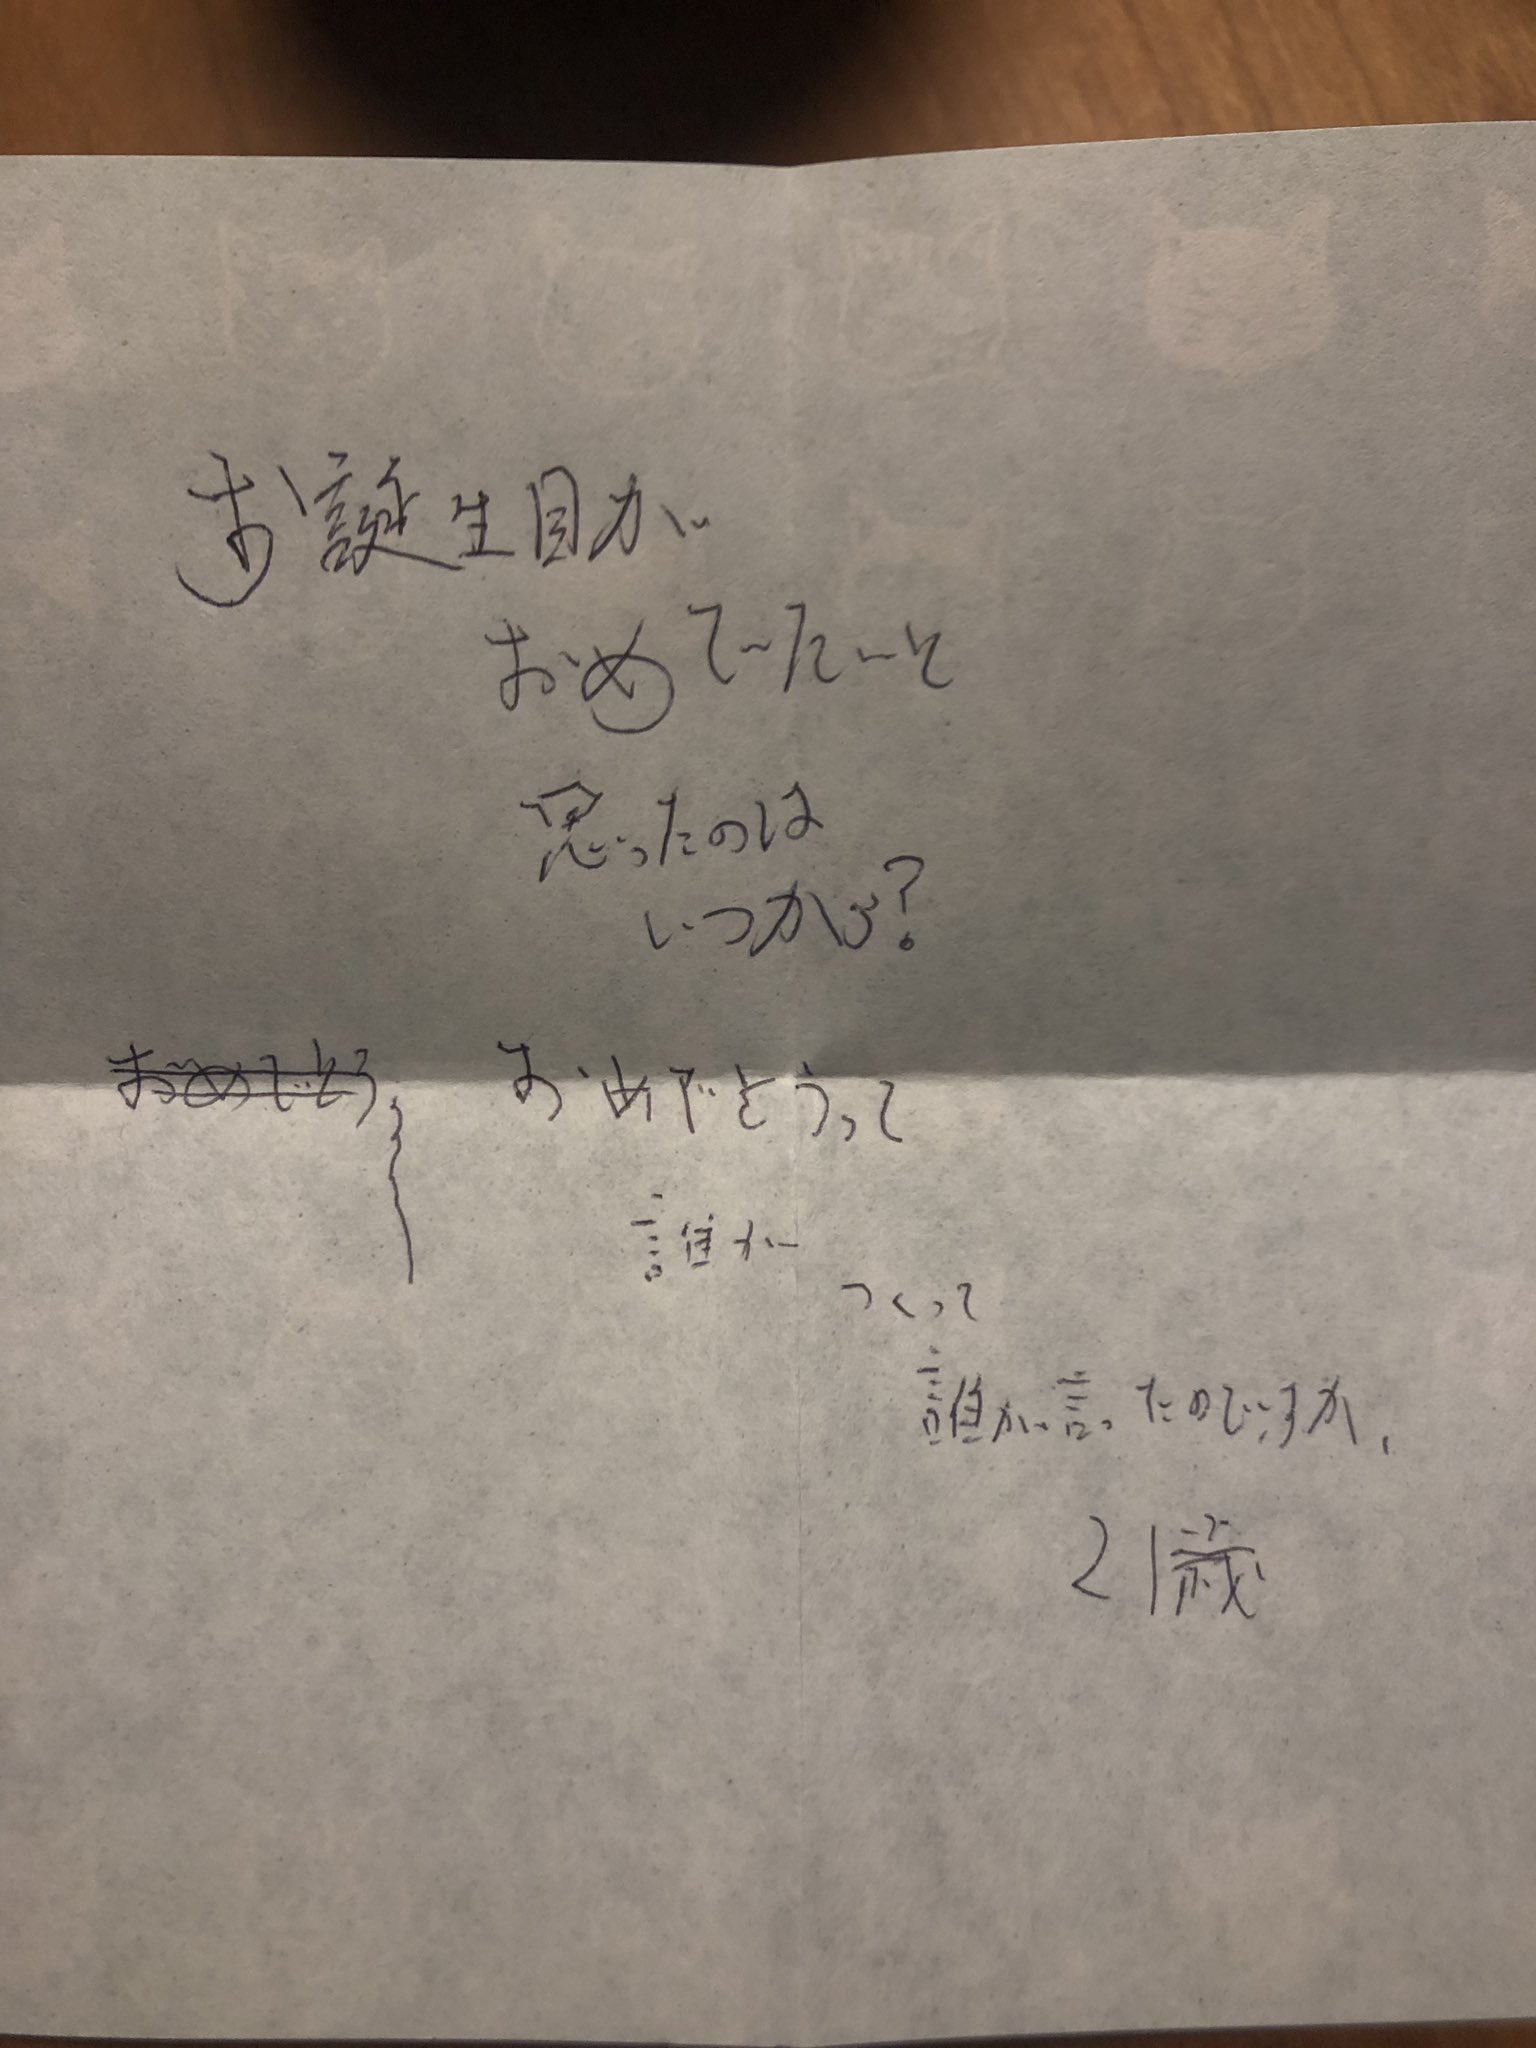 お誕生日が
おめでたいと
思ったのは
いつから?
おめでとう
おめでとうって
誰が
つくって
誰が言ったのですか、
21歳